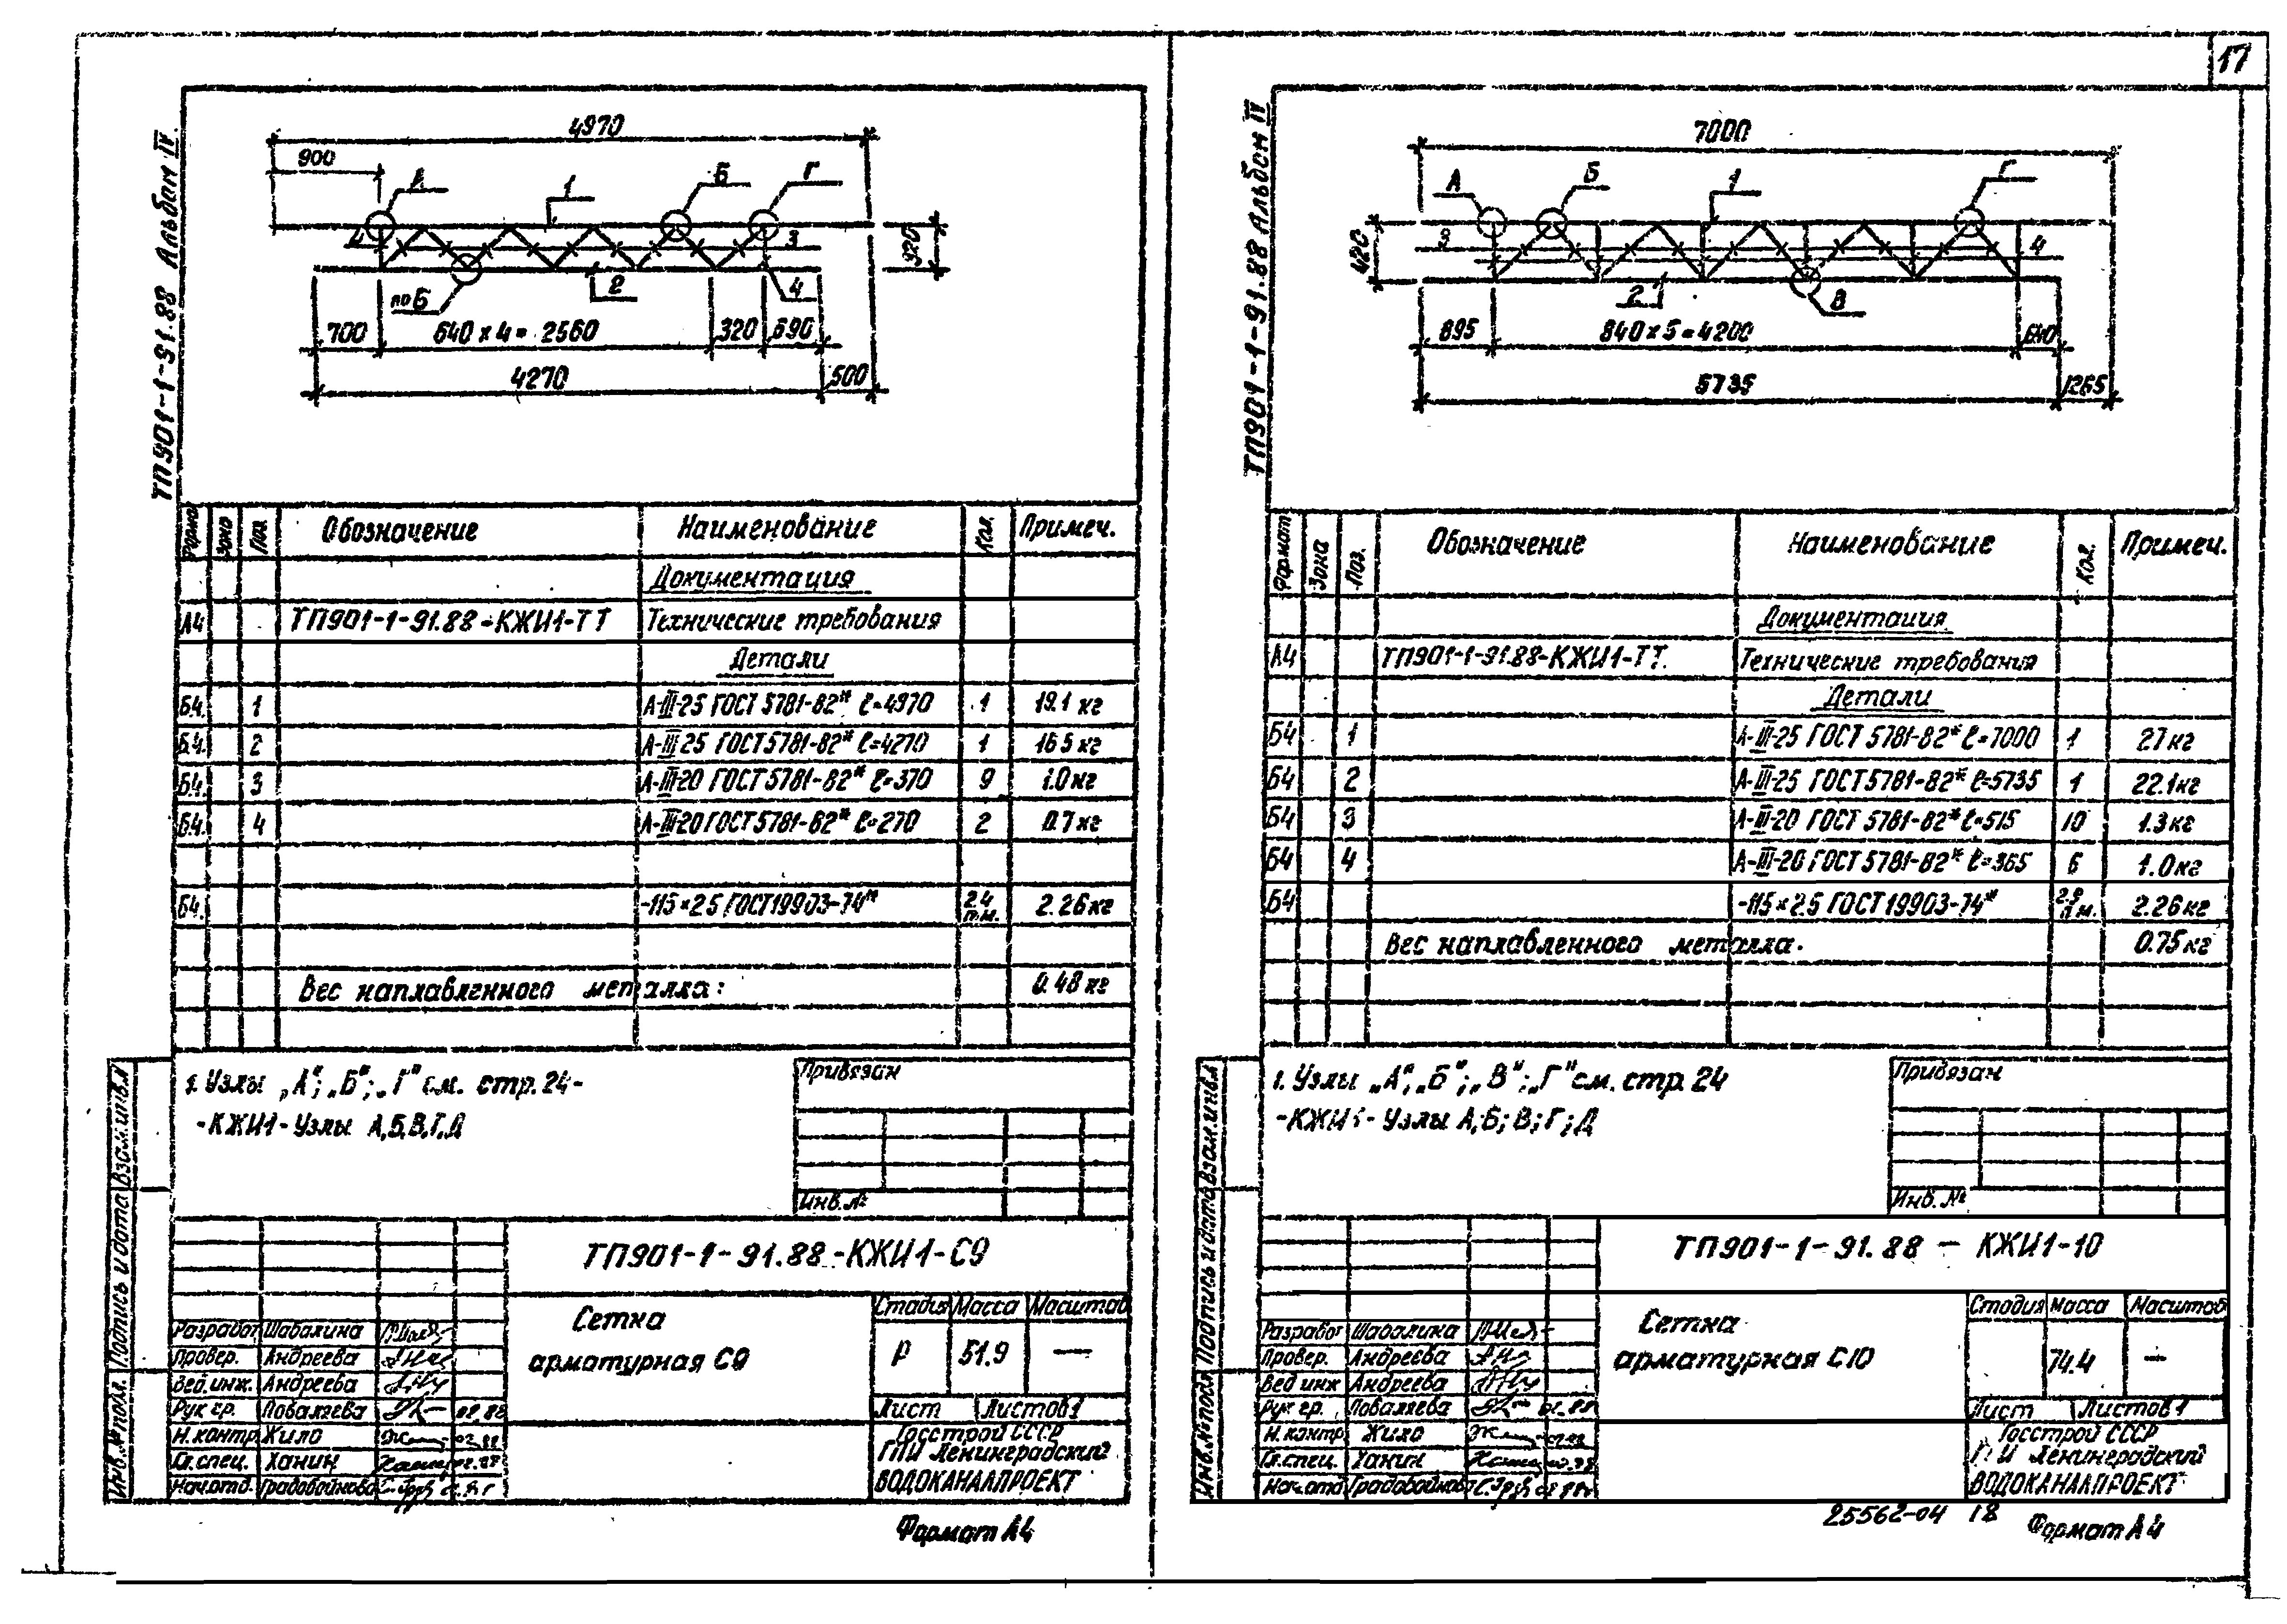 17
ТП901-1-91.88 Альбом IV
4970
900
А
1
Б
Г
4
3
320
по Б
2
4
700
640 х 4 = 2560
320
690
4270
500
Формат Зона Поз. Обозначение Наименование Кол. Примеч.
Документация
А4 ТП901-1-91.88-КЖИ1-ТТ Технические требования
Детали
Б4. 1 А-III-25 ГОСТ 5781-82* ℓ=4970 1 19.1 кг
Б.4. 2 А-III-25 ГОСТ 5781-82* ℓ=4270 1 16 5 кг
Б.4. 3 А-III-20 ГОСТ 5781-82* ℓ=370 9 1.0 кг
Б.4. 4 А-III-20 ГОСТ 5781-82* ℓ=270 2 0.7 кг
Б4. -115×2.5 ГОСТ 19903-74* 2.4 п.м. 2.26 кг
Вес наплавленного металла: 0.48 кг
1. Узлы „А"; „Б"; „Г" см. стр. 24-
-КЖИ1- Узлы А,Б,В,Г,Д
Привязан
Инв. №
Взам. инв. №
Подпись и дата
Инв. № подл.
ТП901-1-91.88-КЖИ1-С9
Сетка
арматурная С9
Стадия Масса Масштаб
Р 51.9 —
Лист Листов 1
Госстрой СССР
ГПИ Ленинградский
ВОДОКАНАЛПРОЕКТ
Разработ Шабалина
Провер. Андреева
Вед. инж. Андреева
Рук гр. Поваляева 02.88
Н. контр Жило 02.88
Гл. спец. Ханин
Нач. отд. Градобойнова
Формат А4
ТП901-1-91.88 Альбом IV
7000
А
Б
1
Г
420
3
4
2
В
895
840 х 5 = 4200
640
5735
1265
Формат Зона Поз. Обозначение Наименование Кол. Примеч.
Документация
А4 ТП901-1-91.88-КЖИ1-ТТ. Технические требования
Детали
Б4 1 А-III-25 ГОСТ 5781-82* ℓ=7000 1 27 кг
Б4 2 А-III-25 ГОСТ 5781-82* ℓ=5735 1 22.1 кг
Б4 3 А-III-20 ГОСТ 5781-82* ℓ=515 10 1.3 кг
Б4 4 А-III-20 ГОСТ 5781-82* ℓ=365 6 1.0 кг
Б4 -115×2.5 ГОСТ 19903-74* п.м. 2.26 кг
Вес наплавленного металла. 0.75 кг
1. Узлы „А"; „Б"; „В"; „Г" см. стр. 24
-КЖИ1- Узлы А; Б; В; Г; Д
Привязан
Инв. №
Взам. инв. №
Подпись и дата
Инв. № подл
ТП901-1-91.88 — КЖИ1-10
Сетка
арматурная С10
Стадия Масса Масштаб
74.4 —
Лист Листов 1
Госстрой СССР
ГПИ Ленинградский
ВОДОКАНАЛПРОЕКТ
Разработ Шабалина
Провер. Андреева
Вед инж Андреева
Рук гр. Поваляева
Н. контр Жило
Гл. спец. Ханин
Нач. отд Градобойнова
25562-04 18
Формат А4